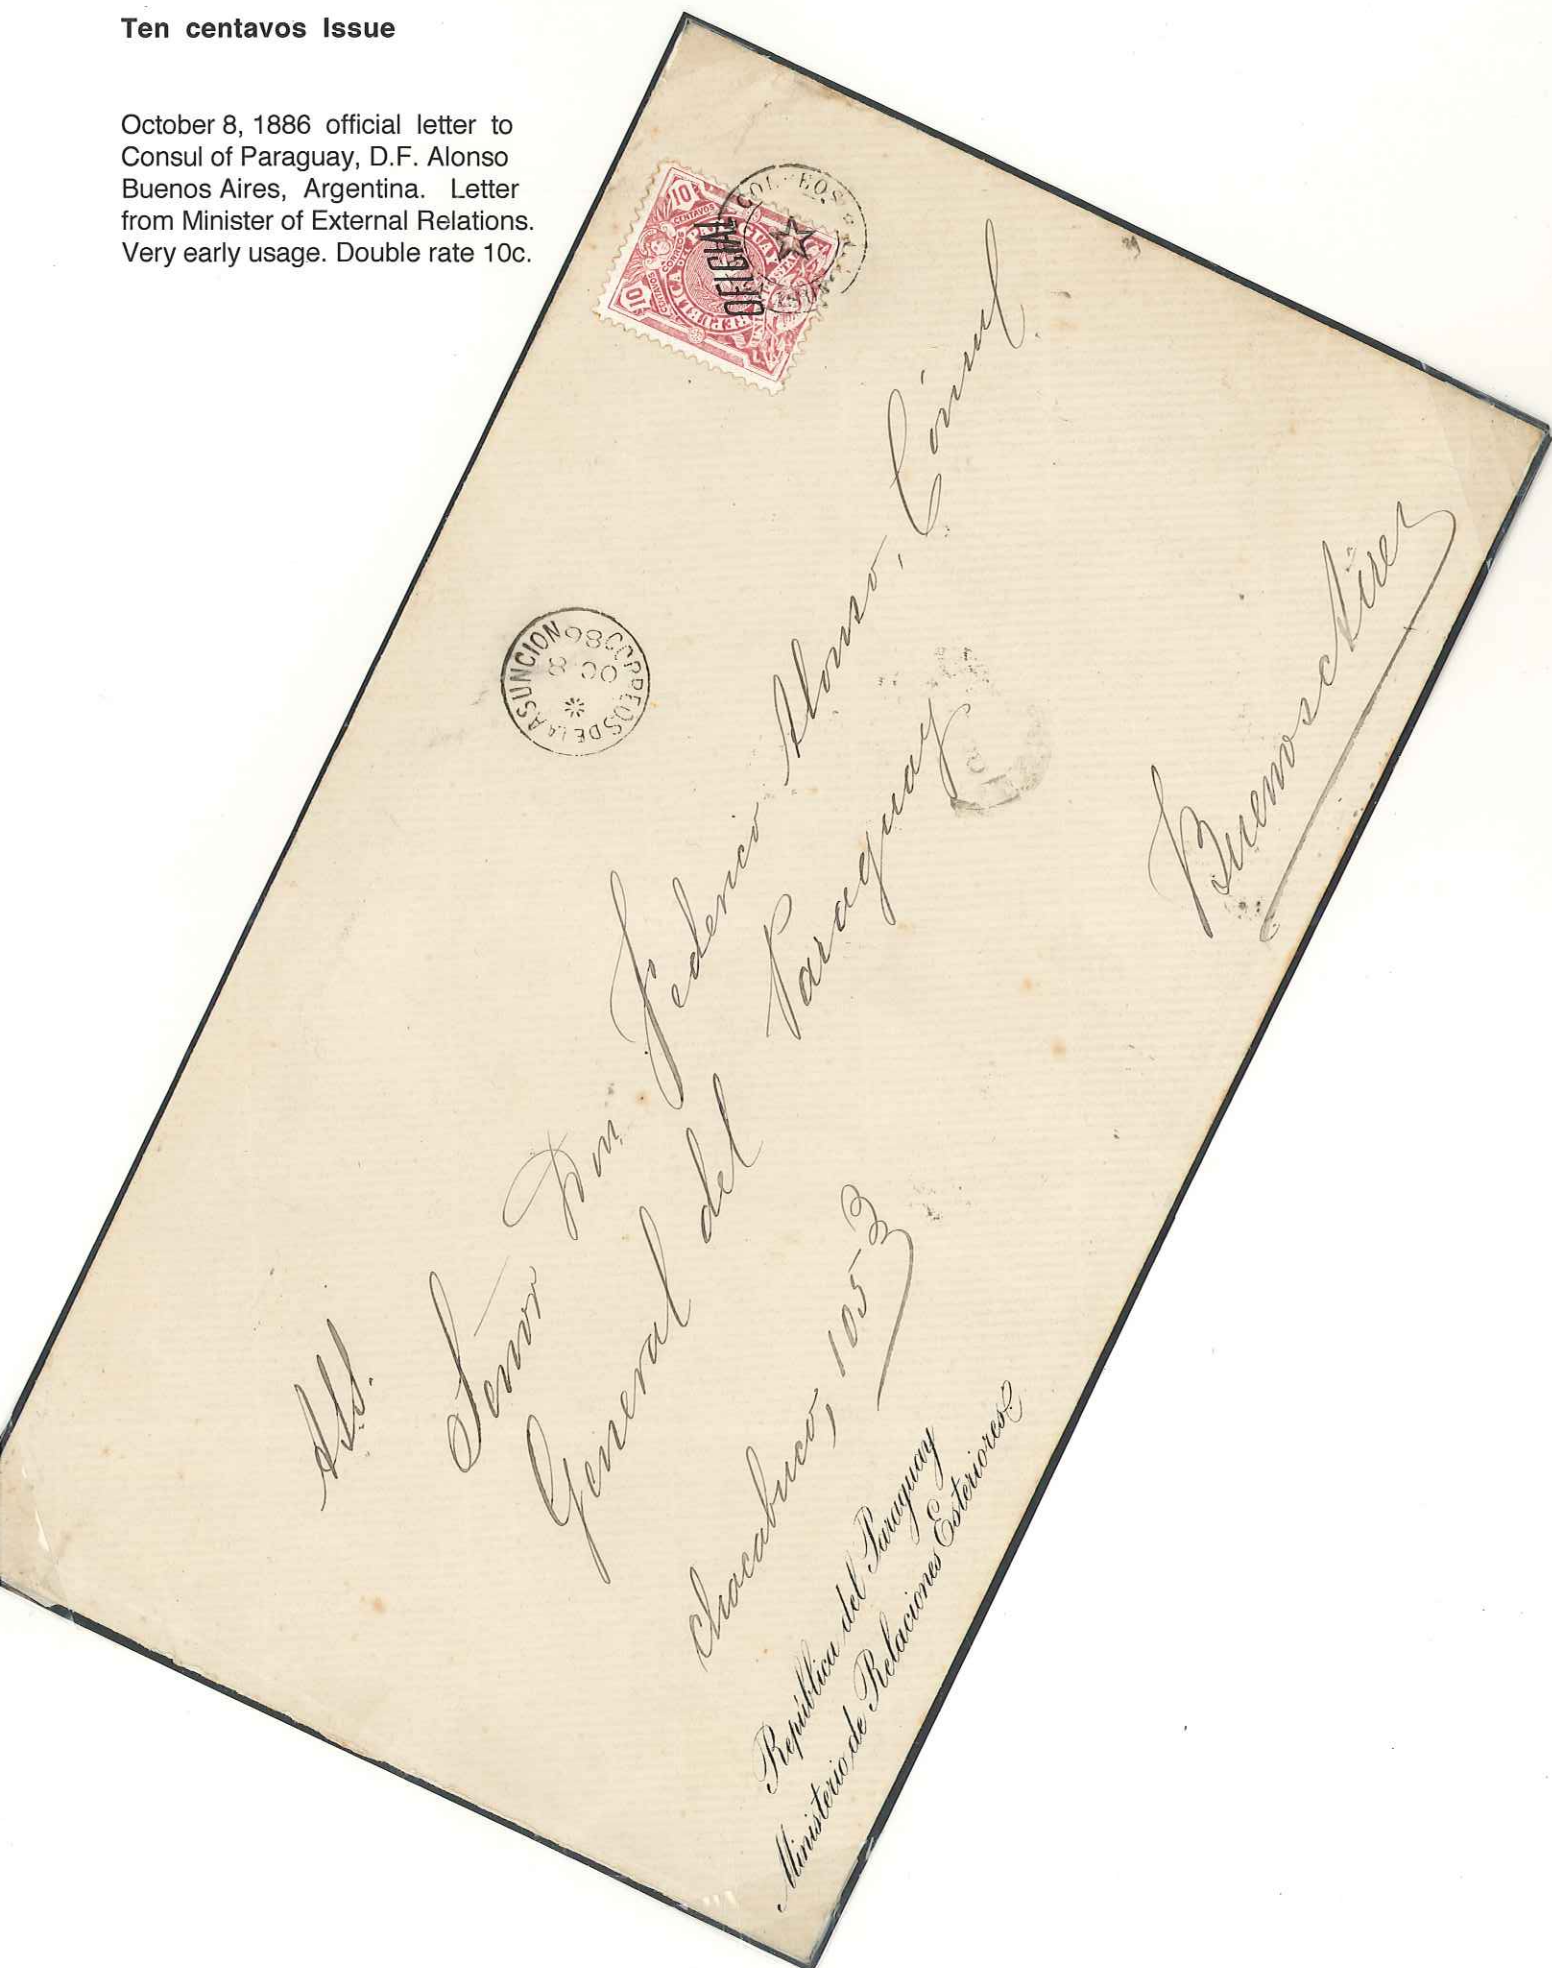 Ten centavos Issue
October 8, 1886 official letter to
Consul of Paraguay, D.F. Alonso
Buenos Aires, Argentina. Letter
from Minister of External Relations.
Very early usage. Double rate 10c.
10
CENTAVOS
10
CENTAVOS
OFICIAL
CORREOS
CORREOS DE LA ASUNCION
8 OC
86
Al S.
Señor Don Federico Alonso, Cónsul
General del Paraguay
Chacabuco, 1053
Buenos Aires
República del Paraguay
Ministerio de Relaciones Esteriores